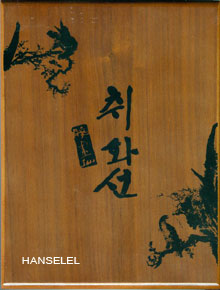 취화선
HANSELEL